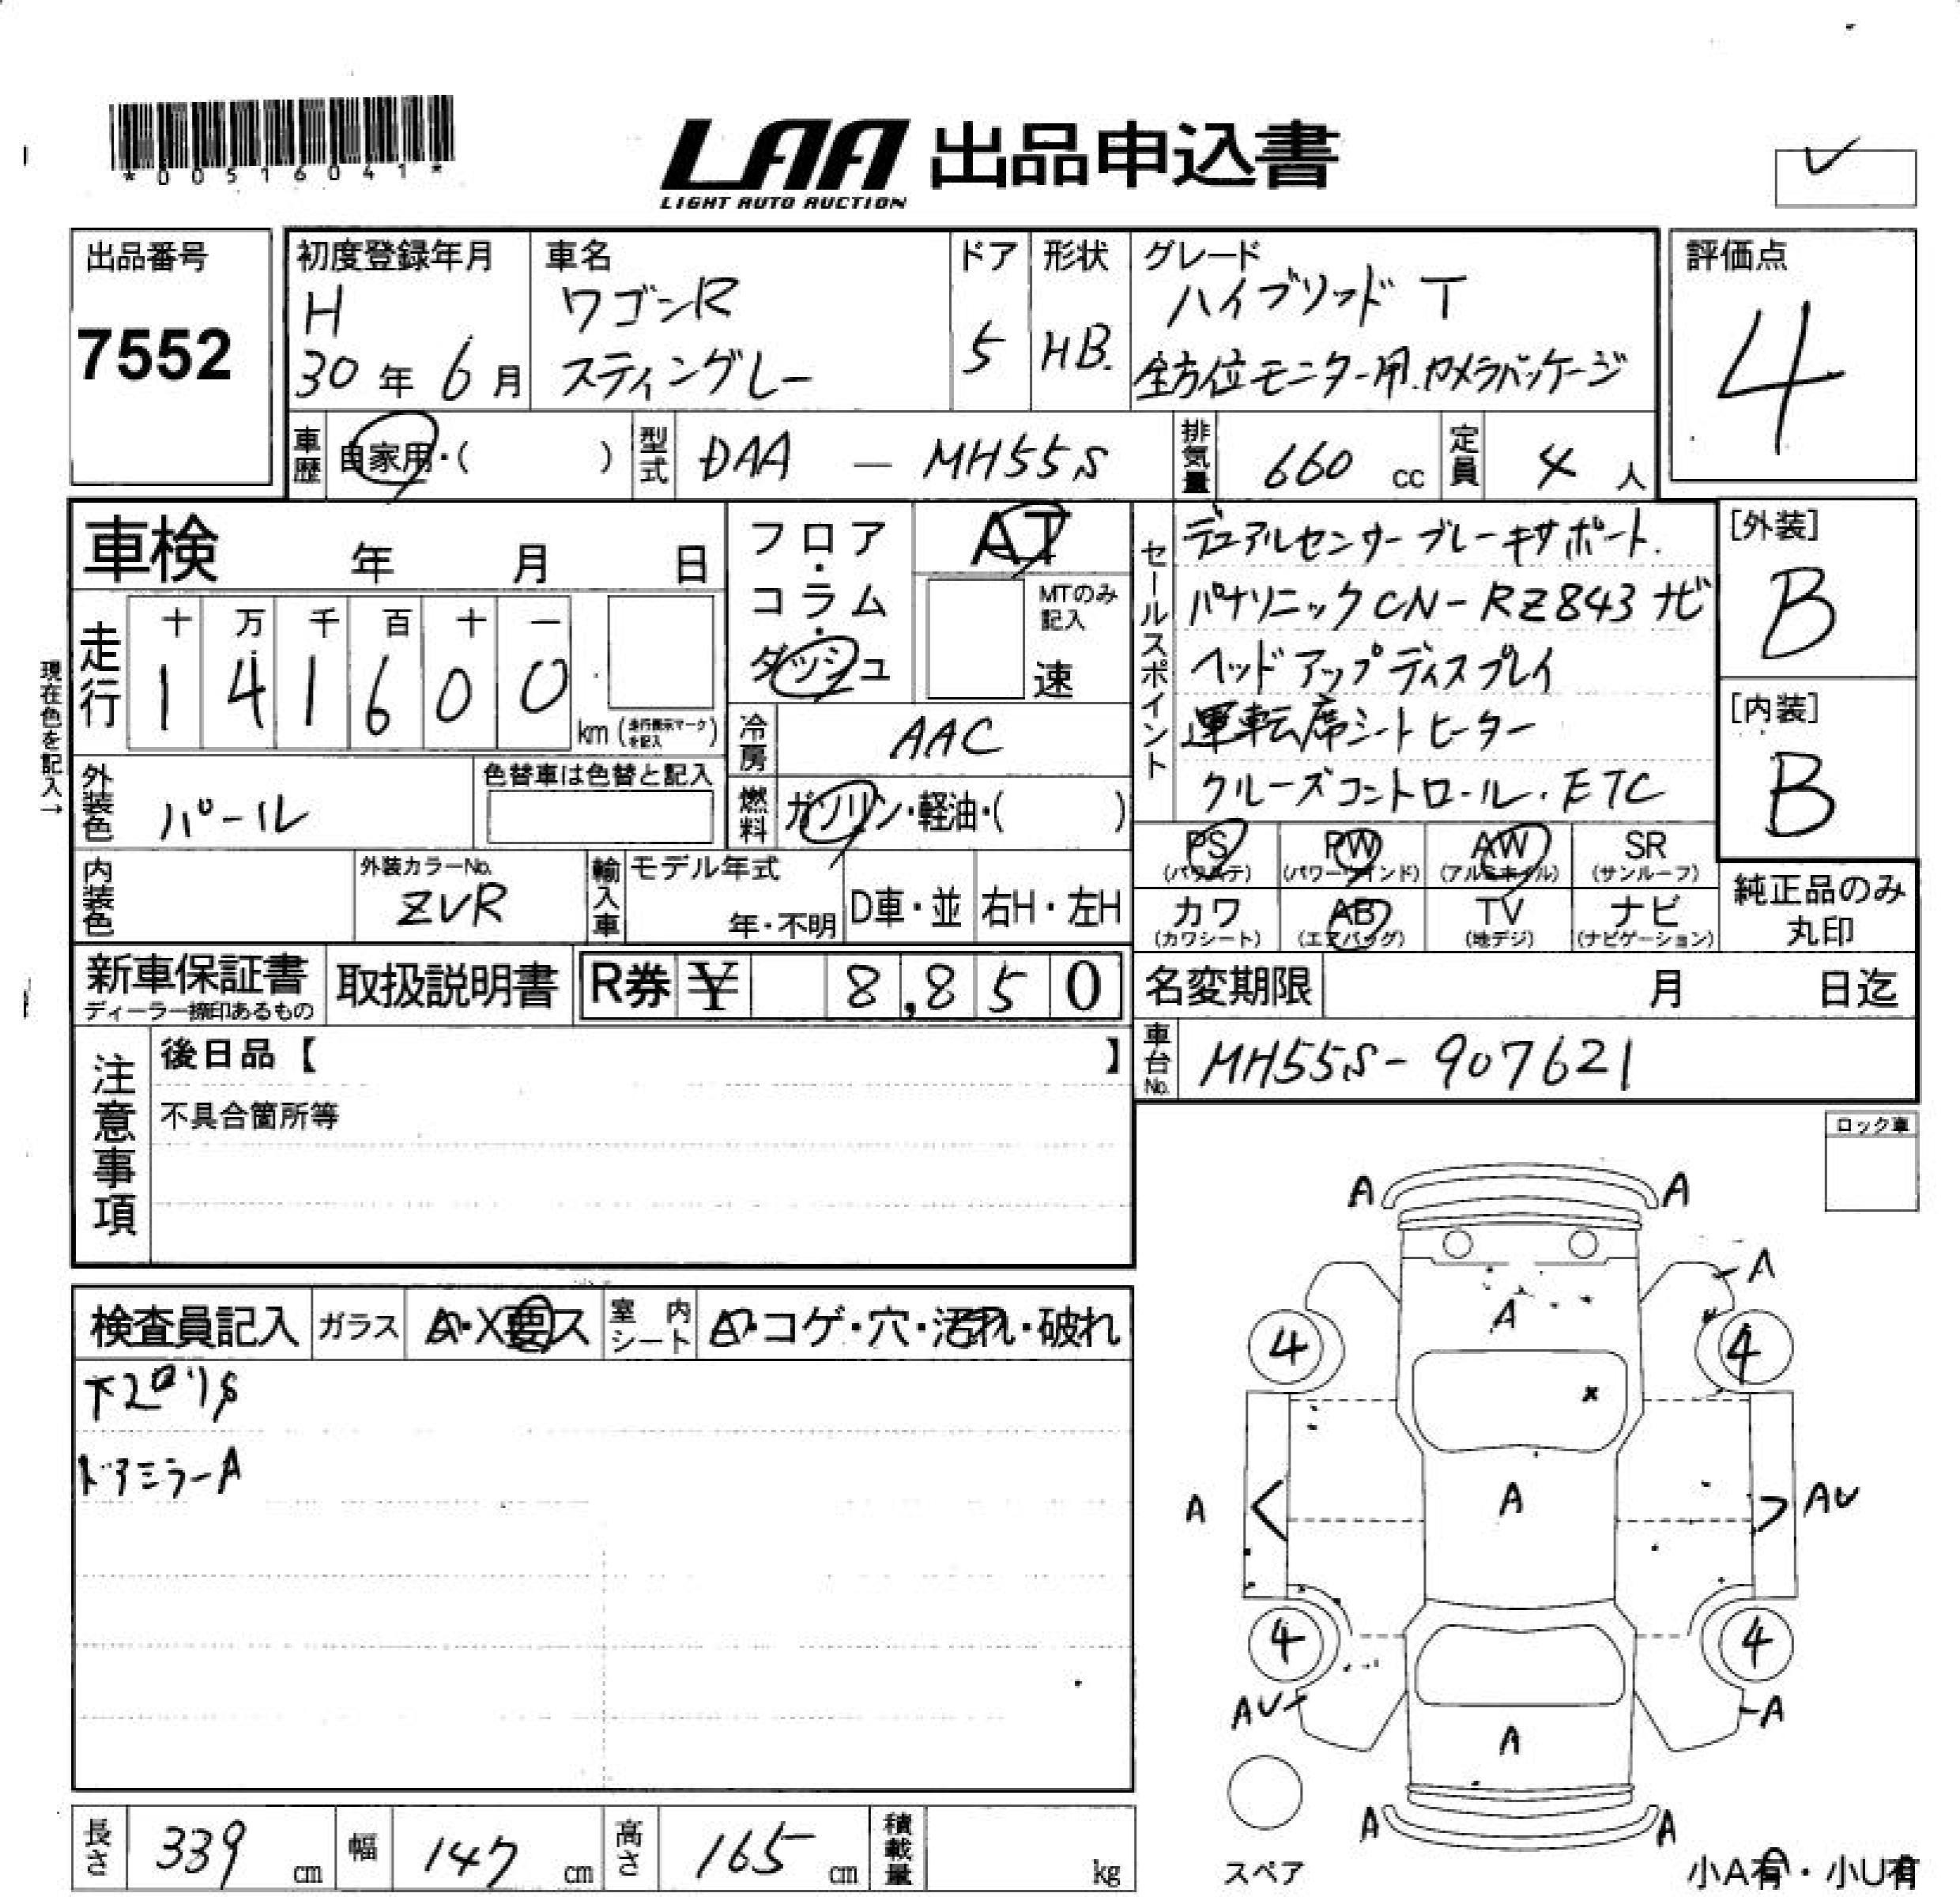 *00516041*
LAA 出品申込書
LIGHT AUTO AUCTION
出品番号
7552
初度登録年月
H
30年 6月
車名
ワゴンR
スティングレー
ドア
5
形状
HB.
グレード
ハイブリッド T
全方位モニター用カメラパッケージ
評価点
4
車歴
自家用・( )
型式
DAA - MH55S
排気量
660 cc
定員
4 人
車検 年 月 日
フロア・コラム・ダッシュ
AT
MTのみ
記入
速
走行
十 万 千 百 十 一
1 4 1 6 0 0
km (走行表示マークを記入)
現在色を記入→
冷房
AAC
外装色
パール
色替車は色替と記入
燃料
ガソリン・軽油・( )
内装色
外装カラーNo.
ZVR
輸入車
モデル年式
年・不明
D車・並
右H・左H
セールスポイント
デュアルセンサーブレーキサポート.
パナソニックCN-RZ843ナビ
ヘッドアップディスプレイ
運転席シートヒーター
クルーズコントロール・ETC
[外装]
B
[内装]
B
PS
(パワステ)
PW
(パワーウインド)
AW
(アルミホイル)
SR
(サンルーフ)
カワ
(カワシート)
AB
(エアバッグ)
TV
(地デジ)
ナビ
(ナビゲーション)
純正品のみ
丸印
新車保証書
ディーラー捺印あるもの
取扱説明書
R券 ¥ 8,850
名変期限 月 日迄
車台No.
MH55S-907621
注意事項
後日品【 】
不具合箇所等
ロック車
検査員記入
ガラス
A・X要ス
室内シート
A・コゲ・穴・汚れ・破れ
ドアミラーA
A A
A
A
4 4
A A AU
4 4
AU A
A
A A
スペア
小A有・小U有
長さ
339 cm
幅
147 cm
高さ
165 cm
積載量
kg